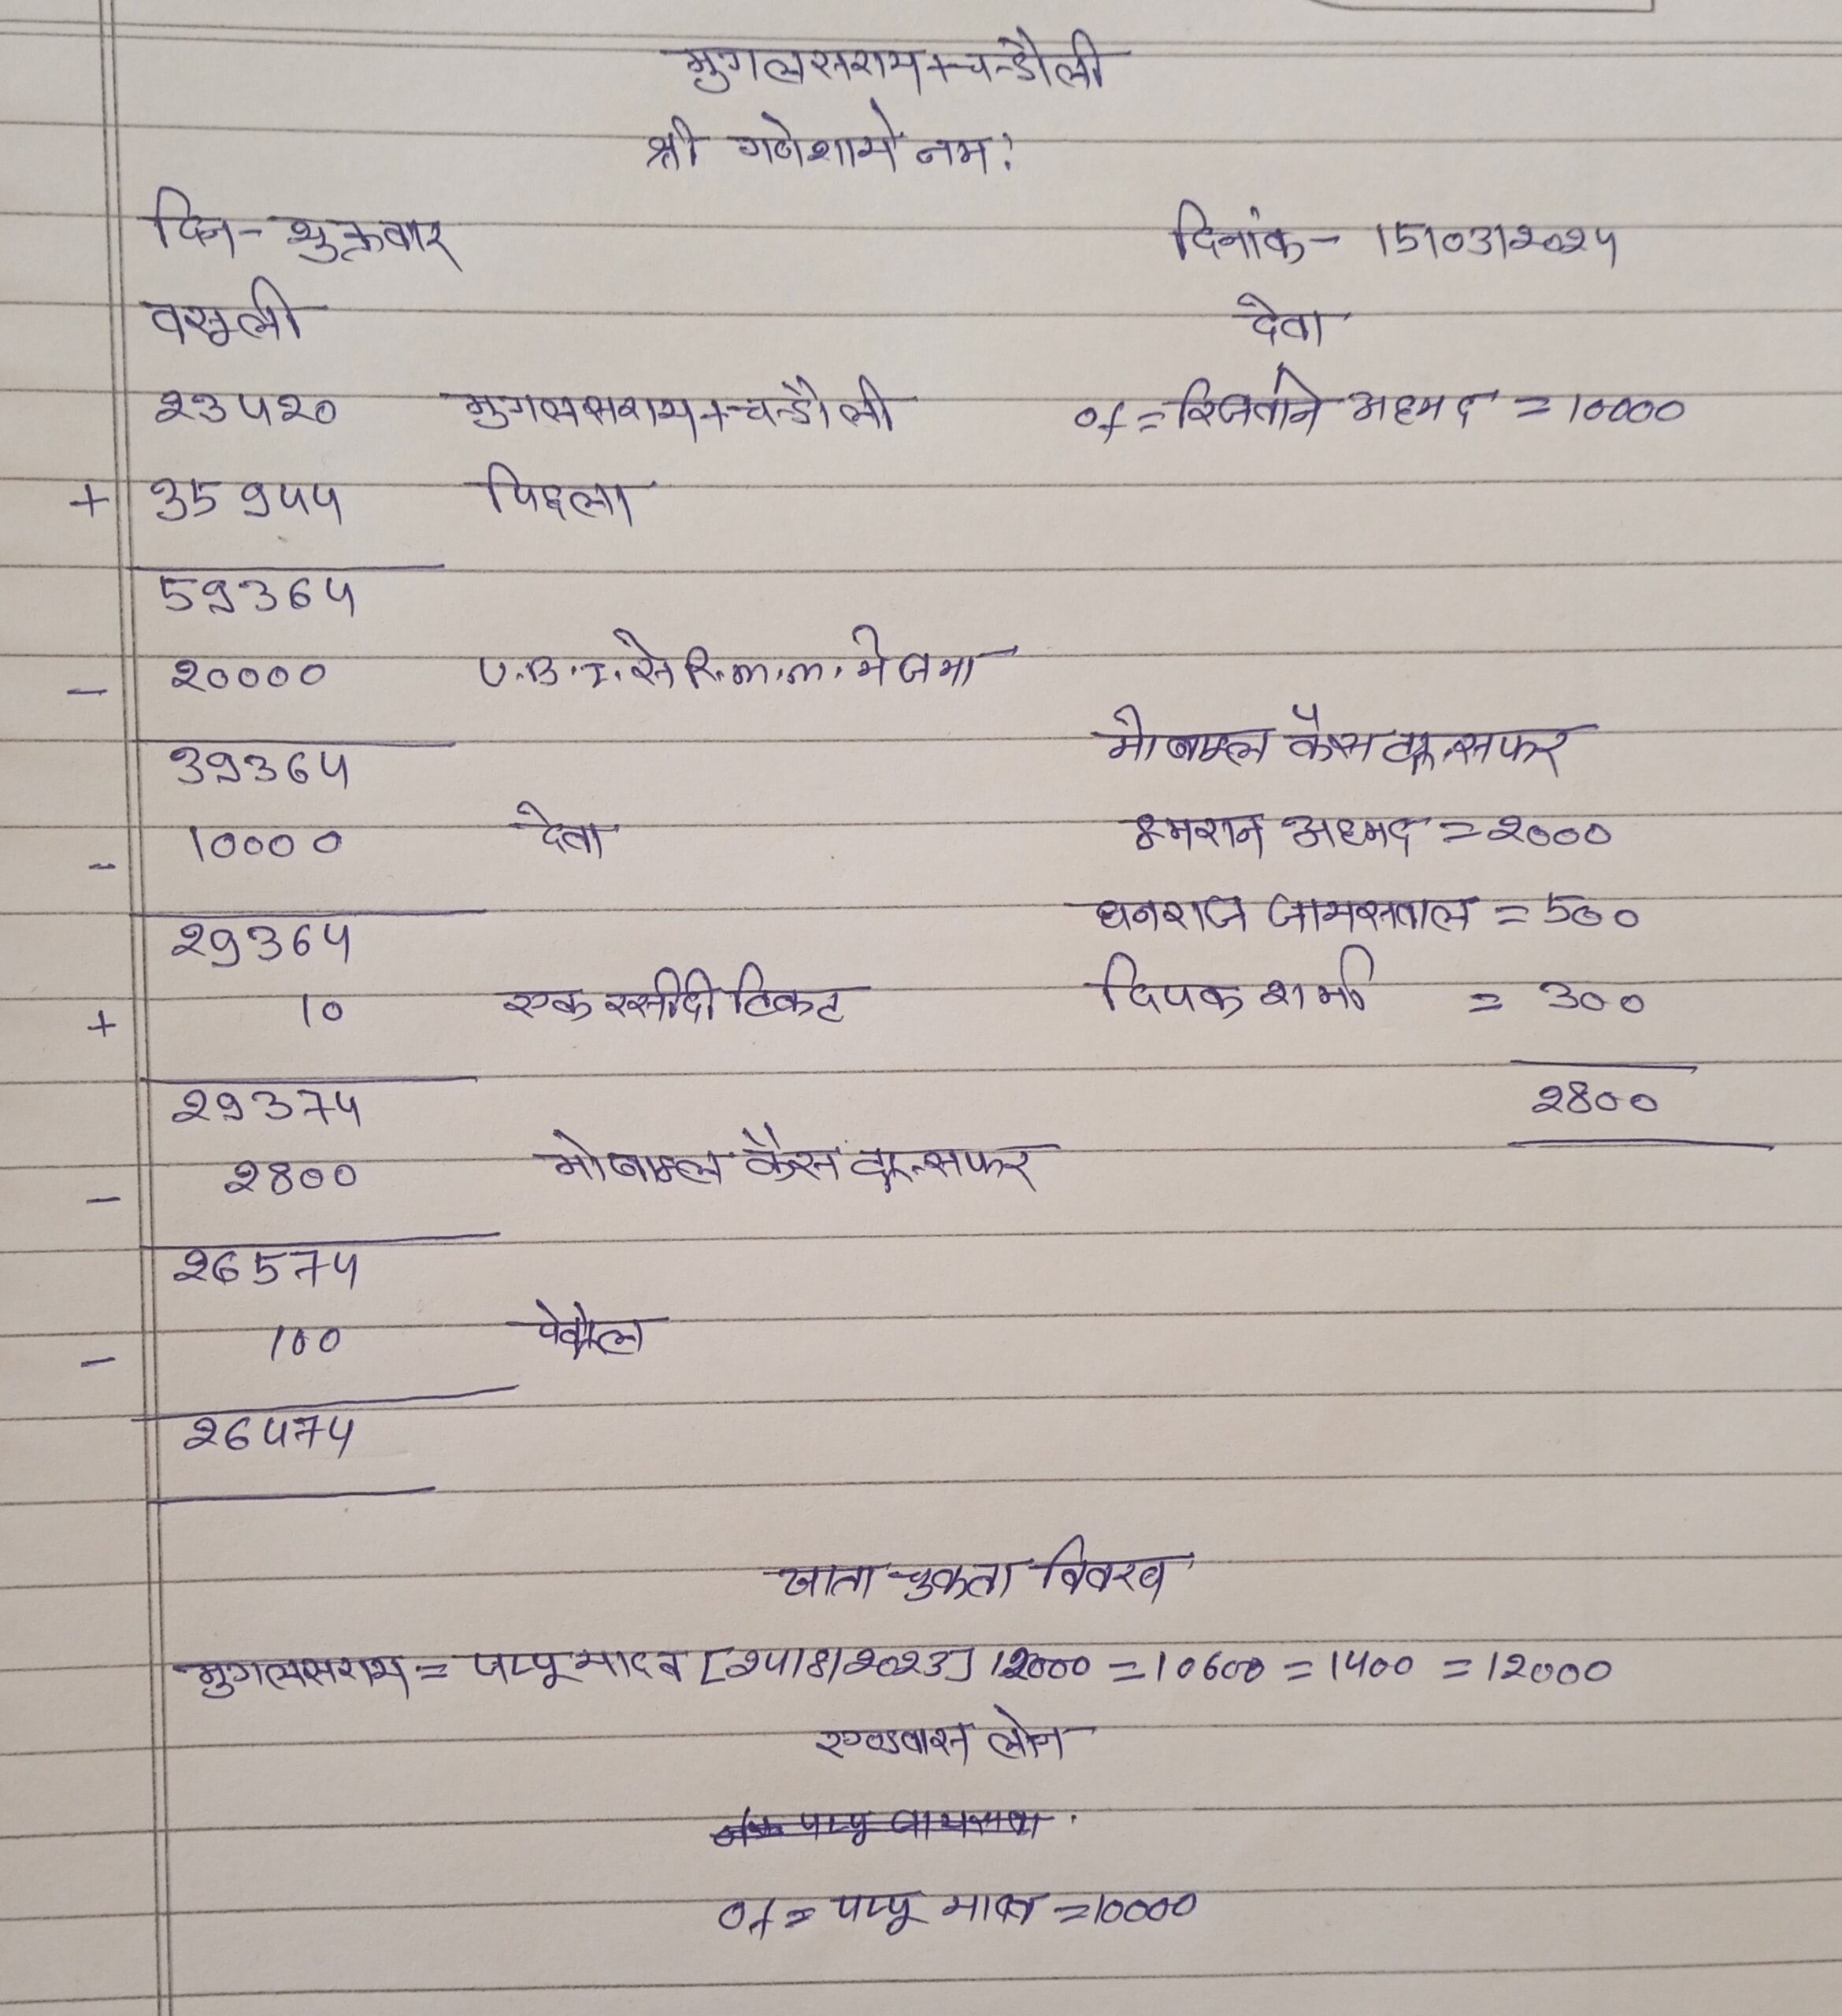 मुगलसराय + चन्डौली
श्री गणेशाये नम:
दिन - शुक्रवार दिनांक - 15/03/2024
वसूली देता
23420 मुगलसराय + चन्डौली of = अहमद = 10000
+ 35944 पिछला
59364
- 20000 U.B.I. से R.m.m. मे जमा
39364 मोबाइल कैस ट्रान्सफर
- 10000 देता इमरान अहमद = 2000
29364 धनराज जायसवाल = 500
+ 10 एक रसीदी टिकट दिपक शर्मा = 300
29374 2800
- 2800 मोबाइल कैस ट्रान्सफर
26574
- 100 पेट्रोल
26474
खाता चुकता विवरण
मुगलसराय = पप्पू यादव [24/8/2023] 12000 = 10600 = 1400 = 12000
एडवास लोन
of = पप्पू यादव = 10000